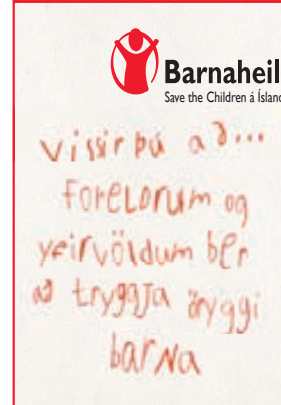 Barnaheil
Save the Children á Ísland
Vissir þú að...
foreldrum og
yfirvöldum ber
að tryggja öryggi
barna